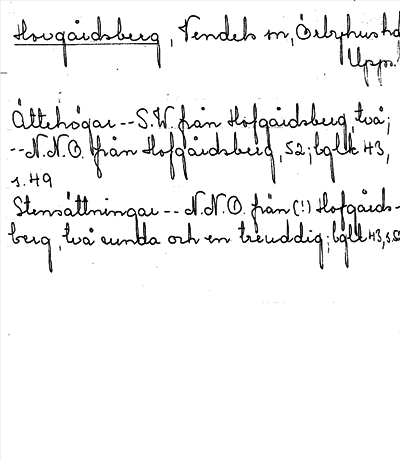 Hovgårdsberg, Vendels sn, Örbyhus hd
Uppl.
Ättehögar -- S.W. från Hofgårdsberg, två;
-- N.N.O. från Hofgårdsberg, 52; bglk 43,
s. 49
Stensättningar -- N.N.O. från (!) Hofgårds-
berg, två runda och en treuddig; bglk 43, s.